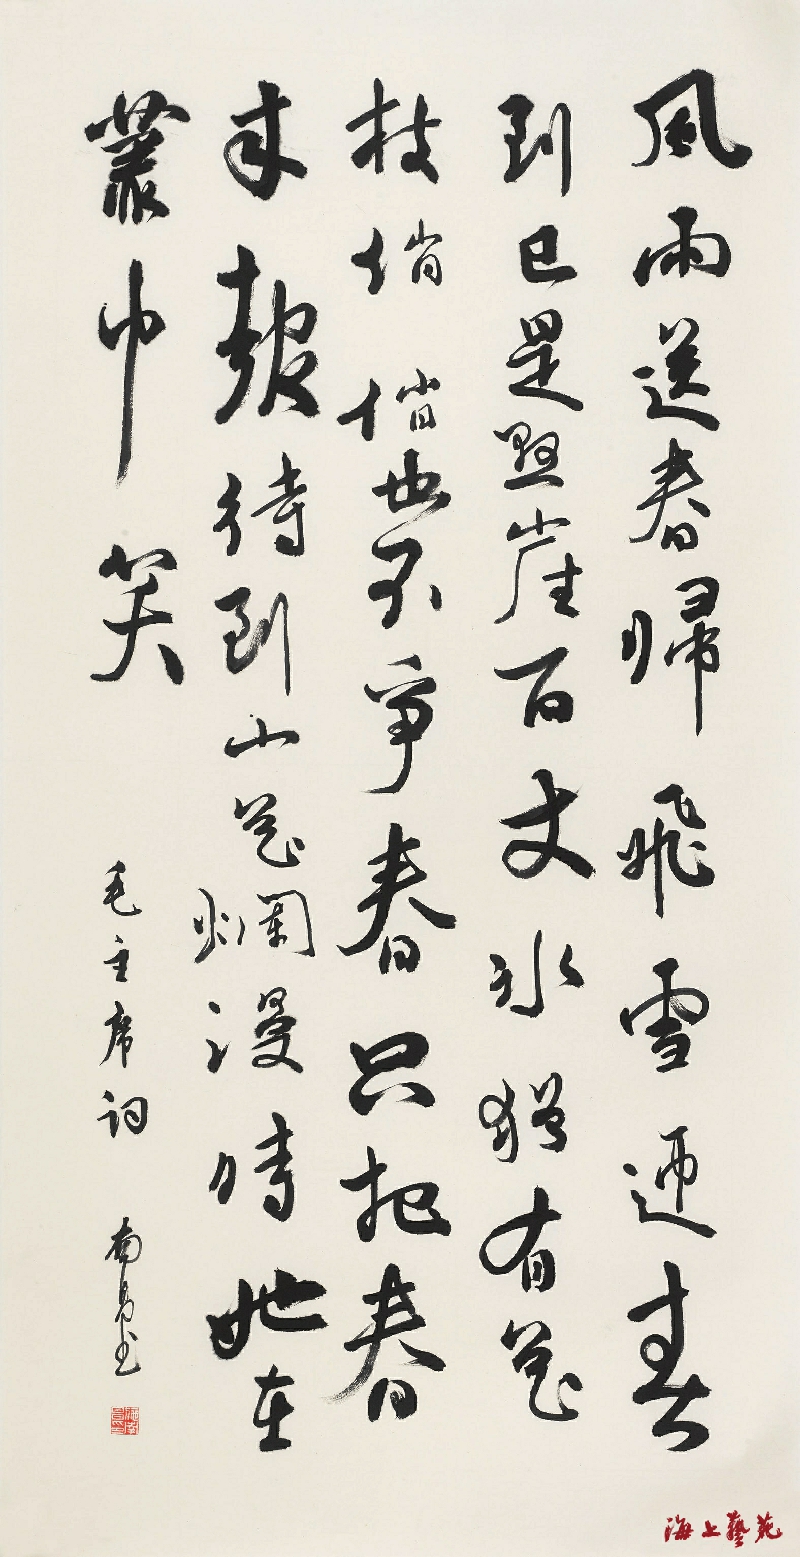 風雨送春歸飛雪迎春
到已是懸崖百丈冰猶有花
枝俏俏也不爭春只把春
来報待到山花爛漫時她在
叢中笑
毛主席詞
海上藝苑